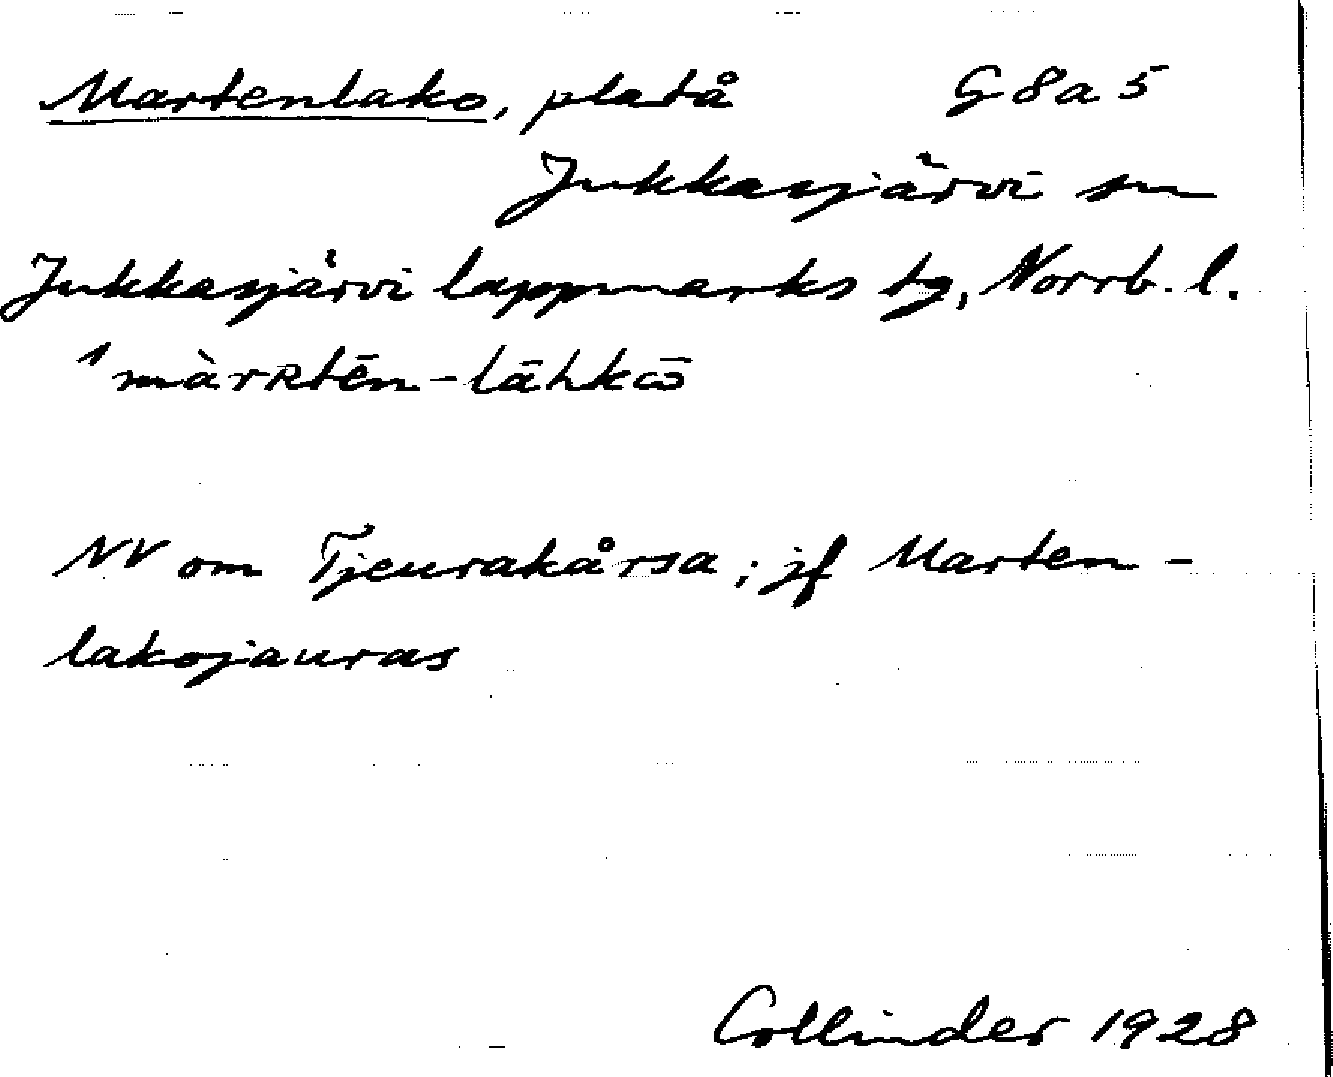 Martenlako, platå G 8a 5
Jukkasjärvi sn
Jukkasjärvi lappmarks tg, Norrb. l.
ˈmàrʀtēn-lāhkω̄
NV om Tjeurakårsa; jf Marten-
lakojauras
Collinder 1928